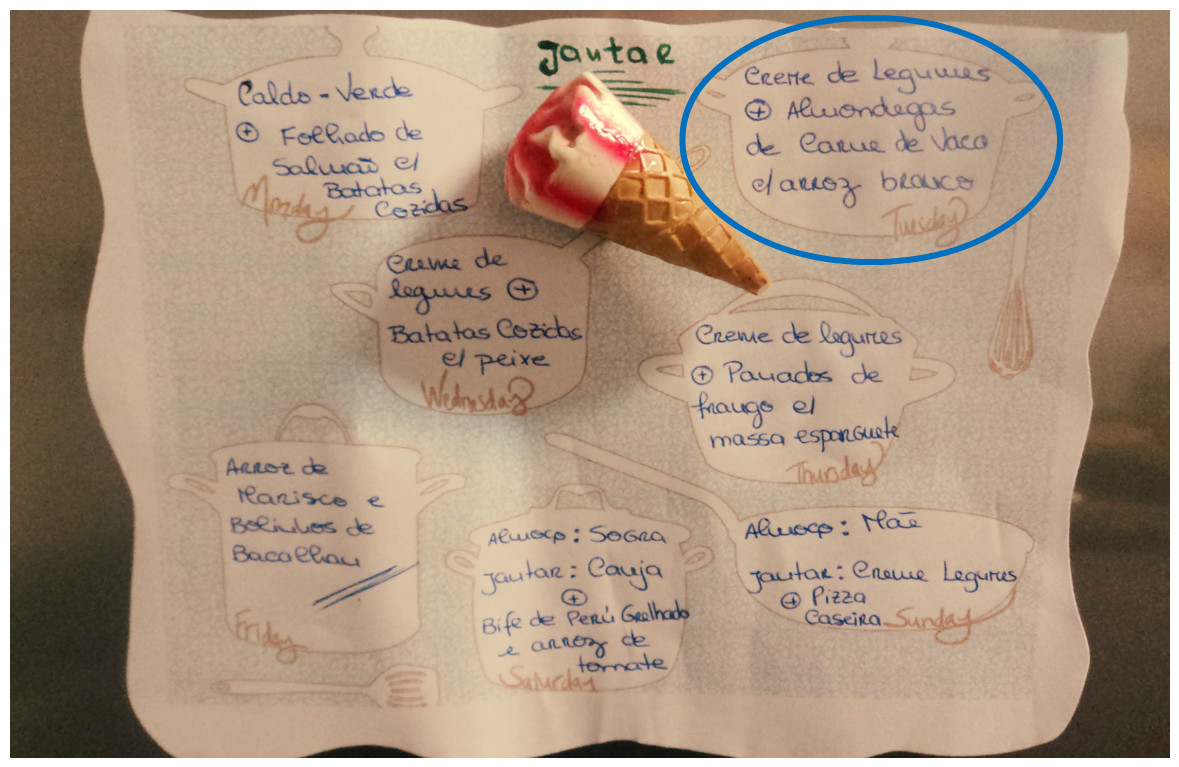 Jantar
Caldo-Verde
+ Folhado de
Salmão c/
Batatas
Cozidas
Monday
Creme de Legumes
+ Almondegas
de Carne de Vaca
c/ arroz branco
Tuesday
Creme de
legumes +
Batatas Cozidas
c/ peixe
Wednesday
Creme de legumes
+ Panados de
frango c/
massa esparguete
Thursday
Arroz de
Marisco e
Bolinhos de
Bacalhau
Friday
Almoço: Sogra
Jantar: Canja
+
Bife de Perú Grelhado
e arroz de
tomate
Saturday
Almoço: Mãe
Jantar: Creme Legumes
+ Pizza
Caseira
Sunday